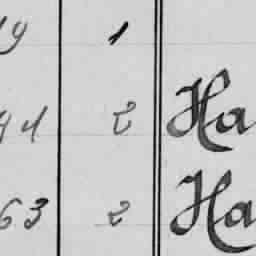 19 1
41 2 Ha
63 2 Ha